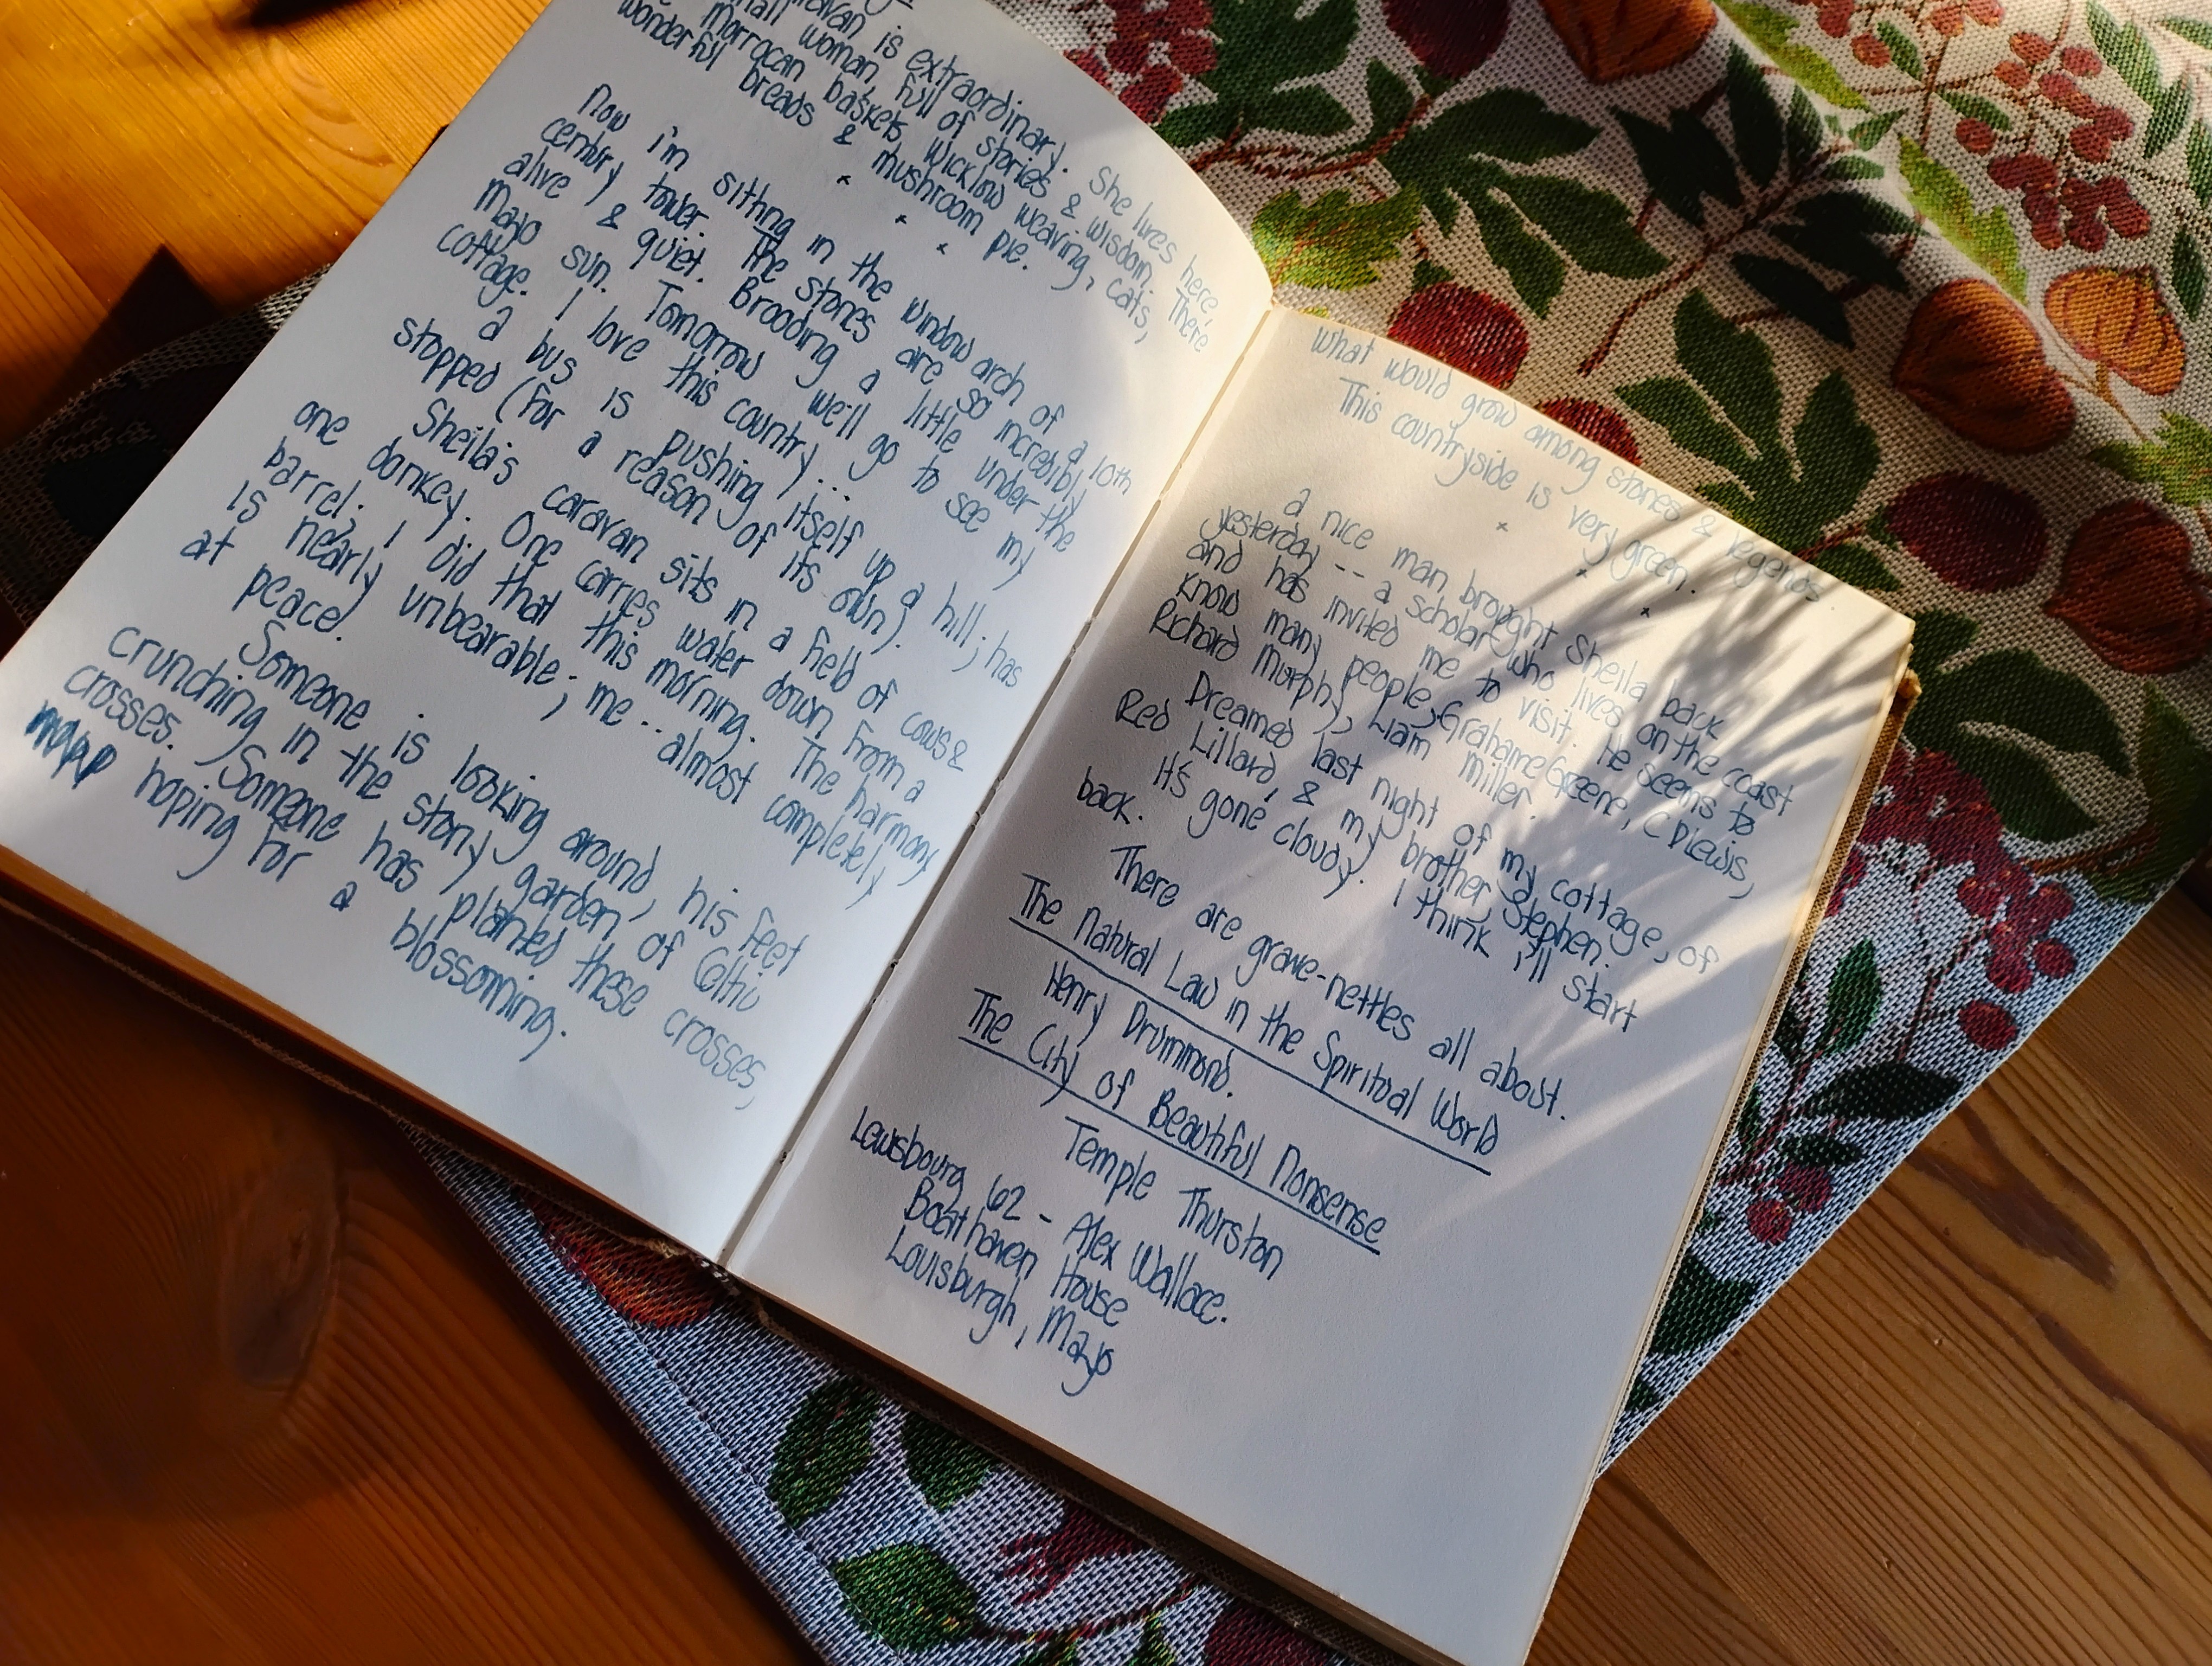 is extraordinary. She lives here
small woman, full of stories & wisdom. There
morrocan baskets, Wicklow weaving, cats,
wonderful breads & mushroom pie.
x x x
Now I'm sitting in the window arch of a 10th
century tower. The stones are so incredibly
alive & quiet. Brooding a little under the
mayo sun. Tomorrow we'll go to see my
cottage. I love this country...
a bus is pushing itself up a hill; has
stopped (for a reason of its own).
Sheila's caravan sits in a field of cows &
one donkey. One carries water down from a
barrel; I did that this morning. The harmony
is nearly unbearable; me -- almost completely
at peace.
Someone is looking around, his feet
crunching in the stony garden of Celtic
crosses. Someone has planted these crosses,
hoping for a blossoming.
what would grow among stones & legends.
This countryside is very green.
x x x
a nice man brought Sheila back
yesterday -- a scholar who lives on the coast
and has invited me to visit. He seems to
know many people, Grahame Greene, C D Lewis,
Richard Murphy, Liam Miller.
Dreamed last night of my cottage, of
Red Lillard, & my brother, Stephen.
It's gone cloudy. I think I'll start
back.
There are grave-nettles all about.
The Natural Law in the Spiritual World
Henry Drummond.
The City of Beautiful Nonsense
Temple Thurston
Lewisbourg 62 - Alex Wallace.
Boathaven House
Louisburgh, Mayo